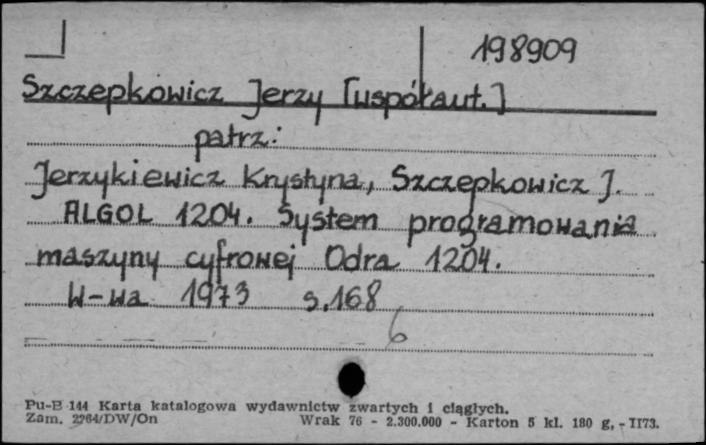 198909
Szczepkowicz Jerzy [współaut.]
patrz:
Jerzykiewicz Krystyna, Szczepkowicz J.
ALGOL 1204. System programowania
maszyny cyfrowej Odra 1204.
W-wa 1973 s.168
6
Pu-B 144 Karta katalogowa wydawnictw zwartych i ciągłych.
Zam. 2264/DW/On Wrak 76 - 2.300.000 - Karton 5 kl. 180 g, - II73.